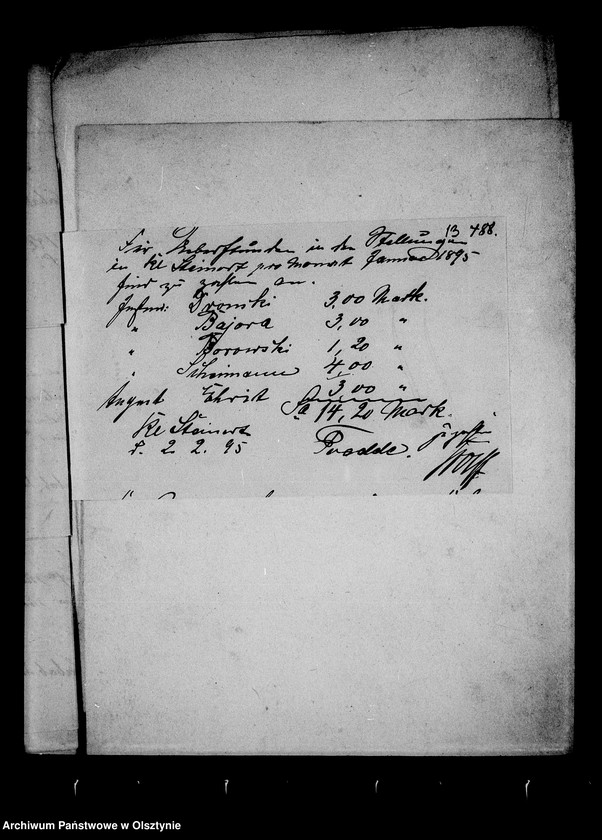 13 488.
Für Ueberstunden in den Stellungen
in Kl Steinort pro Monat Januar 1895
sind zu zahlen an.
Instm: Dronski 3,00 Mark.
" Bajora 3,00 "
" Borowski 1,20 "
" Scheimann 4,00 "
August Ehrit 3,00 "
Sa 14,20 Mark.
Kl Steinort
d. 2. 2. 95 Pradde.
Archiwum Państwowe w Olsztynie